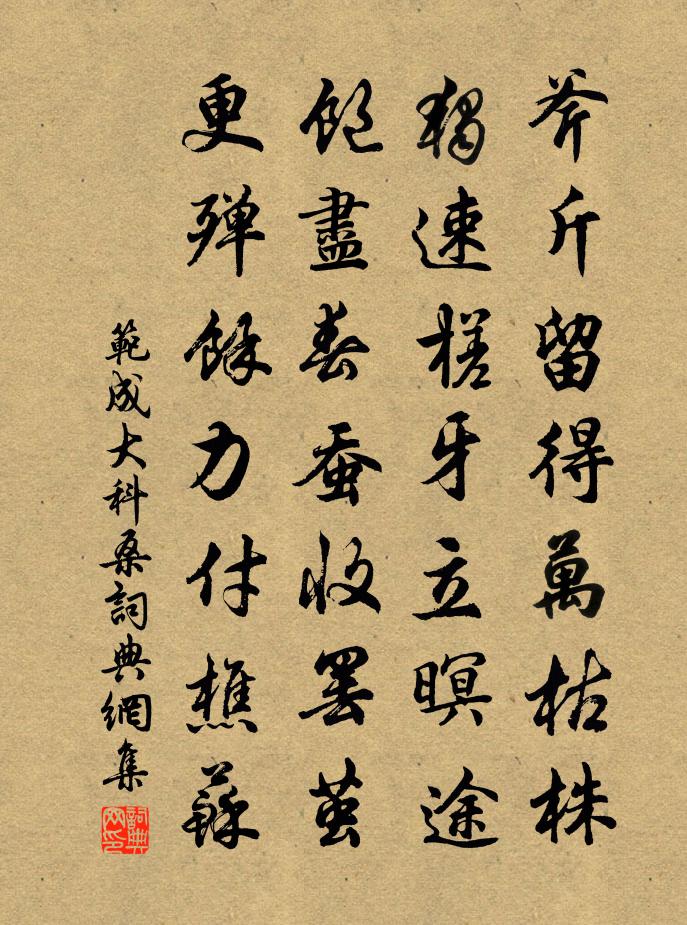 斧斤留得萬枯株
獨速槎牙立暝途
飽盡春蚕收罷茧
更殫餘力付樵蘇
範成大科桑詞典網集
詞典网印